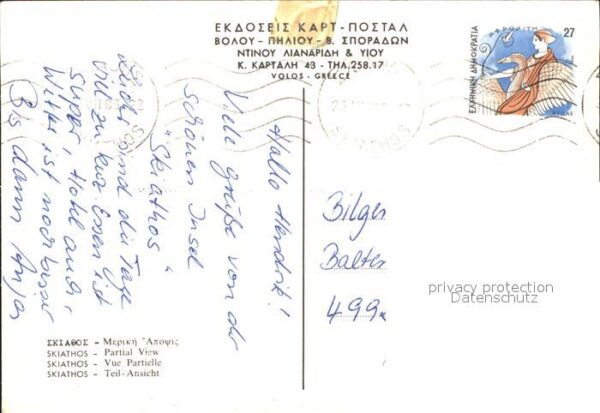 ΕΚΔΟΣΕΙΣ ΚΑΡΤ-ΠΟΣΤΑΛ
ΒΟΛΟΥ - ΠΗΛΙΟΥ - Β. ΣΠΟΡΑΔΩΝ
ΝΤΙΝΟΥ ΛΙΑΝΑΡΙΔΗ & ΥΙΟΥ
Κ. ΚΑΡΤΑΛΗ 43 - ΤΗΛ. 258.17
VOLOS - GREECE
ΑΦΡΟΔΙΤΗ
27
ΕΛΛΗΝΙΚΗ ΔΗΜΟΚΡΑΤΙΑ
HELLAS
Hallo Hendrik!
Viele Grüße von der
schönen Insel
"Skiathos"
Leider sind die Tage
viel zu kurz. Essen ist
super, Hotel auch,
Wetter ist noch besser
Bis dann Anja
Bilges
Balter
499
privacy protection
Datenschutz
ΣΚΙΑΘΟΣ - Μερική Ἄποψις
SKIATHOS - Partial View
SKIATHOS - Vue Partielle
SKIATHOS - Teil-Ansicht